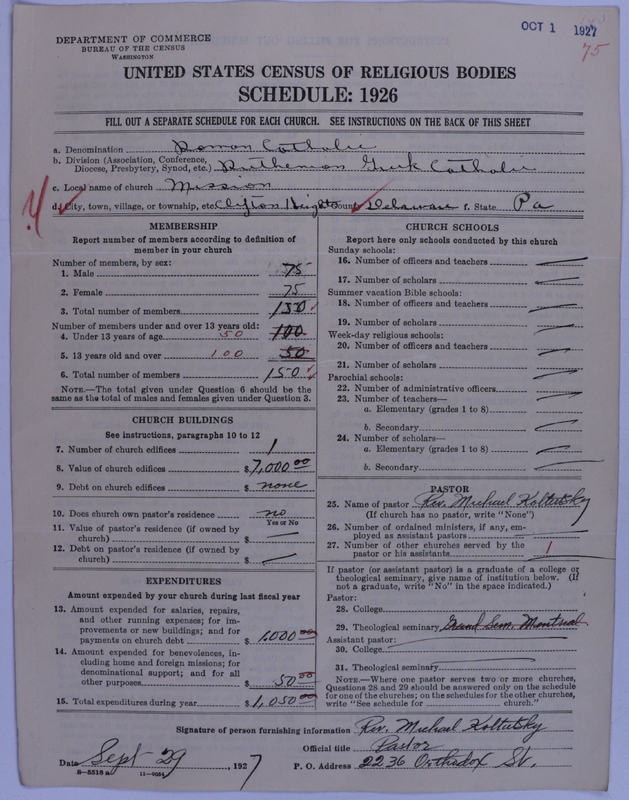 OCT 1 1927
75
DEPARTMENT OF COMMERCE
BUREAU OF THE CENSUS
WASHINGTON
UNITED STATES CENSUS OF RELIGIOUS BODIES
SCHEDULE: 1926
FILL OUT A SEPARATE SCHEDULE FOR EACH CHURCH. SEE INSTRUCTIONS ON THE BACK OF THIS SHEET
a. Denomination Roman Catholic
b. Division (Association, Conference,
Diocese, Presbytery, Synod, etc.) Ruthenian Greek Catholic
c. Local name of church Mission
d. City, town, village, or township, etc. Clifton Heights County Delaware f. State Pa
MEMBERSHIP
Report number of members according to definition of
member in your church
Number of members, by sex:
1. Male 75
2. Female 75
3. Total number of members 150
Number of members under and over 13 years old:
4. Under 13 years of age 50 100
5. 13 years old and over 100 50
6. Total number of members 150
NOTE.—The total given under Question 6 should be the
same as the total of males and females given under Question 3.
CHURCH BUILDINGS
See instructions, paragraphs 10 to 12
7. Number of church edifices 1
8. Value of church edifices $ 7,000.00
9. Debt on church edifices $ none
10. Does church own pastor's residence no
Yes or No
11. Value of pastor's residence (if owned by
church) $ —
12. Debt on pastor's residence (if owned by
church) $ —
EXPENDITURES
Amount expended by your church during last fiscal year
13. Amount expended for salaries, repairs,
and other running expenses; for im-
provements or new buildings; and for
payments on church debt $ 1,000 00
14. Amount expended for benevolences, in-
cluding home and foreign missions; for
denominational support; and for all
other purposes $ 50 00
15. Total expenditures during year $ 1,050 00
CHURCH SCHOOLS
Report here only schools conducted by this church
Sunday schools:
16. Number of officers and teachers —
17. Number of scholars —
Summer vacation Bible schools:
18. Number of officers and teachers —
19. Number of scholars —
Week-day religious schools:
20. Number of officers and teachers —
21. Number of scholars —
Parochial schools:
22. Number of administrative officers —
23. Number of teachers—
a. Elementary (grades 1 to 8) —
b. Secondary —
24. Number of scholars—
a. Elementary (grades 1 to 8) —
b. Secondary —
PASTOR
25. Name of pastor Rev. Michael Koltutsky
(If church has no pastor, write "None")
26. Number of ordained ministers, if any, em-
ployed as assistant pastors —
27. Number of other churches served by the
pastor or his assistants 1
If pastor (or assistant pastor) is a graduate of a college or
theological seminary, give name of institution below. (If
not a graduate, write "No" in the space indicated.)
Pastor:
28. College
29. Theological seminary Grand Sem. Montreal
Assistant pastor:
30. College
31. Theological seminary
NOTE.—Where one pastor serves two or more churches,
Questions 28 and 29 should be answered only on the schedule
for one of the churches; on the schedules for the other churches,
write "See schedule for church."
Signature of person furnishing information Rev. Michael Koltutsky
Official title Pastor
Date Sept 29, 1927 P. O. Address 2236 Orthodox St.